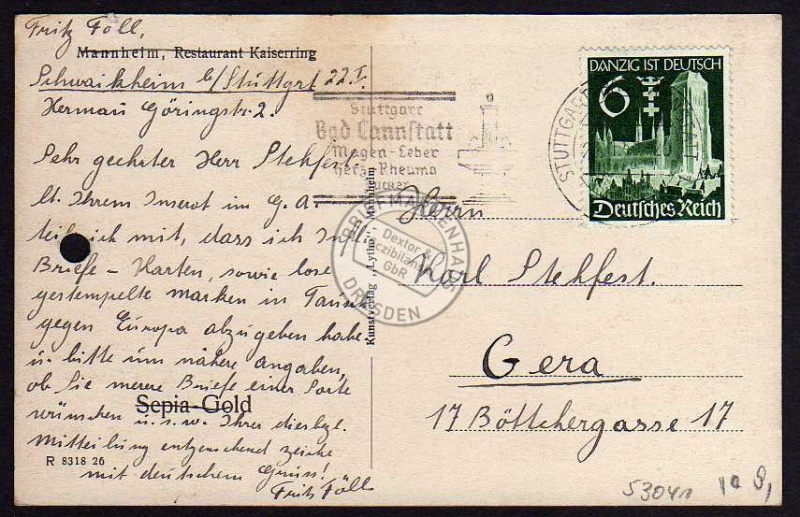 Fritz Föll,
Mannheim, Restaurant Kaiserring
Schwaikheim b/Stuttgrt 22.I.
Herman Göringstr. 2.
Sehr geehrter Herr Stekfest
lt. Ihrem Inserat im G. A.
teile ich mit, dass ich
Briefe - Karten, sowie lose
gestempelte marken in Tausch
gegen Europa abzugeben habe
u. bitte um nähere angaben,
ob Sie merere Briefe einer Sorte
wünschen u.s.w. Ihrer diesbzgl.
Sepia-Gold
Mitteilung entgensehend zeiche
R 8318 26
mit deutschem Gruss!
Fritz Föll
Kunstverlag „Lytho", Mannheim
Stuttgart
Bad Cannstatt
Magen-Leber
Herz-Rheuma
Zucker
STUTTGART
DANZIG IST DEUTSCH
6
Deutsches Reich
Herrn
Karl Stekfest.
Gera
17 Böttchergasse 17
53041
BRIEFMARKENHAUS
Dextor &
GbR
DRESDEN